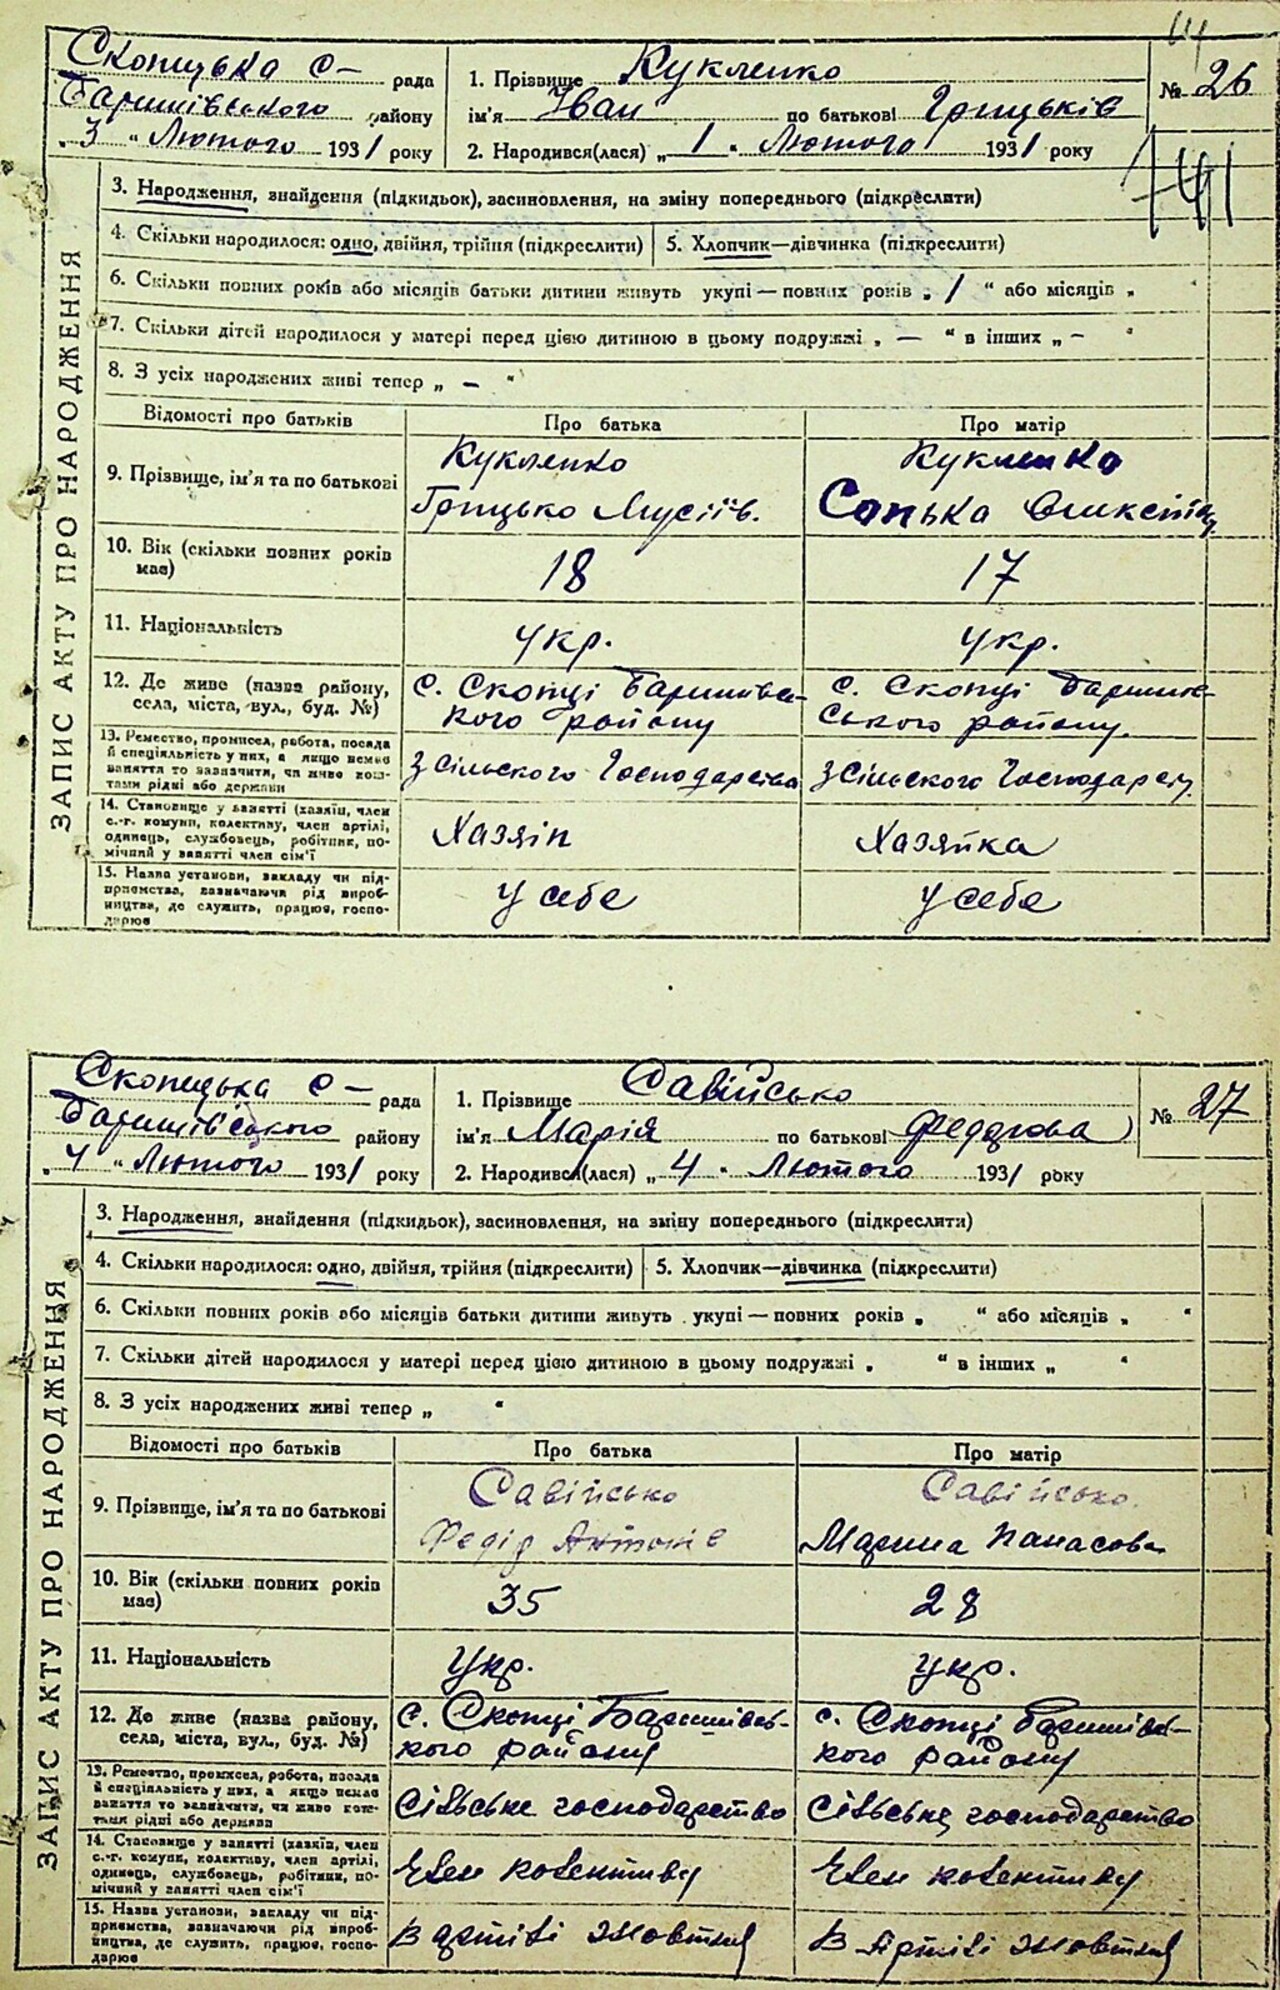 Скопецька с– рада
Баришівського району
„3" Лютого 1931 року
1. Прізвище Кукленко
ім'я Іван по батькові Грицьків
2. Народився(лася) „1" Лютого 1931 року
№ 26
3. Народження, знайдення (підкидьок), засиновлення, на зміну попереднього (підкреслити)
4. Скільки народилося: одно, двійня, трійня (підкреслити) 5. Хлопчик—дівчинка (підкреслити)
6. Скільки повних років або місяців батьки дитини живуть укупі — повних років „1" або місяців „ "
7. Скільки дітей народилося у матері перед цією дитиною в цьому подружжі „ — " в інших „ – "
8. З усіх народжених живі тепер „ – "
Відомості про батьків Про батька Про матір
9. Прізвище, ім'я та по батькові
Кукленко Кукленко
Грицько Мусіїв. Сонька
10. Вік (скільки повних років має) 18 17
11. Національність укр. укр.
12. Де живе (назва району, села, міста, вул., буд. №)
с. Скопці Баришівсь- с. Скопці Баришів-
кого району ського району.
13. Ремество, промисел, робота, посада й спеціяльність у них, а якщо немає заняття то зазначити, чи живе коштами рідні або держави
З сільського Господарства З сільського Господарст.
14. Становище у занятті (хазяїн, член с.-г. комуни, колективу, член артілі, одинець, службовець, робітник, помічний у занятті член сім'ї
Хазяїн Хазяйка
15. Назва установи, закладу чи підприємства, зазначаючи рід виробництва, де служить, працює, господарює
У себе У себе
ЗАПИС АКТУ ПРО НАРОДЖЕННЯ
Скопецька с– рада
Баришівського району
„4" Лютого 1931 року
1. Прізвище Савійсько
ім'я Марія по батькові Федорова
2. Народився(лася) „4" Лютого 1931 року
№ 27
3. Народження, знайдення (підкидьок), засиновлення, на зміну попереднього (підкреслити)
4. Скільки народилося: одно, двійня, трійня (підкреслити) 5. Хлопчик—дівчинка (підкреслити)
6. Скільки повних років або місяців батьки дитини живуть укупі — повних років „ " або місяців „ "
7. Скільки дітей народилося у матері перед цією дитиною в цьому подружжі „ " в інших „ "
8. З усіх народжених живі тепер „ "
Відомості про батьків Про батька Про матір
9. Прізвище, ім'я та по батькові
Савійсько Савійсько
Федір Антонів Марина Панасова
10. Вік (скільки повних років має) 35 28
11. Національність укр. укр.
12. Де живе (назва району, села, міста, вул., буд. №)
с. Скопці Баришівсь- с. Скопці Баришівсь-
кого району кого району
13. Ремество, промисел, робота, посада й спеціяльність у них, а якщо немає заняття то зазначити, чи живе коштами рідні або держави
Сільське господарство Сільське господарство
14. Становище у занятті (хазяїн, член с.-г. комуни, колективу, член артілі, одинець, службовець, робітник, помічний у занятті член сім'ї
Член колективу Член колективу
15. Назва установи, закладу чи підприємства, зазначаючи рід виробництва, де служить, працює, господарює
В артілі Жовтня В Артілі Жовтня
ЗАПИС АКТУ ПРО НАРОДЖЕННЯ